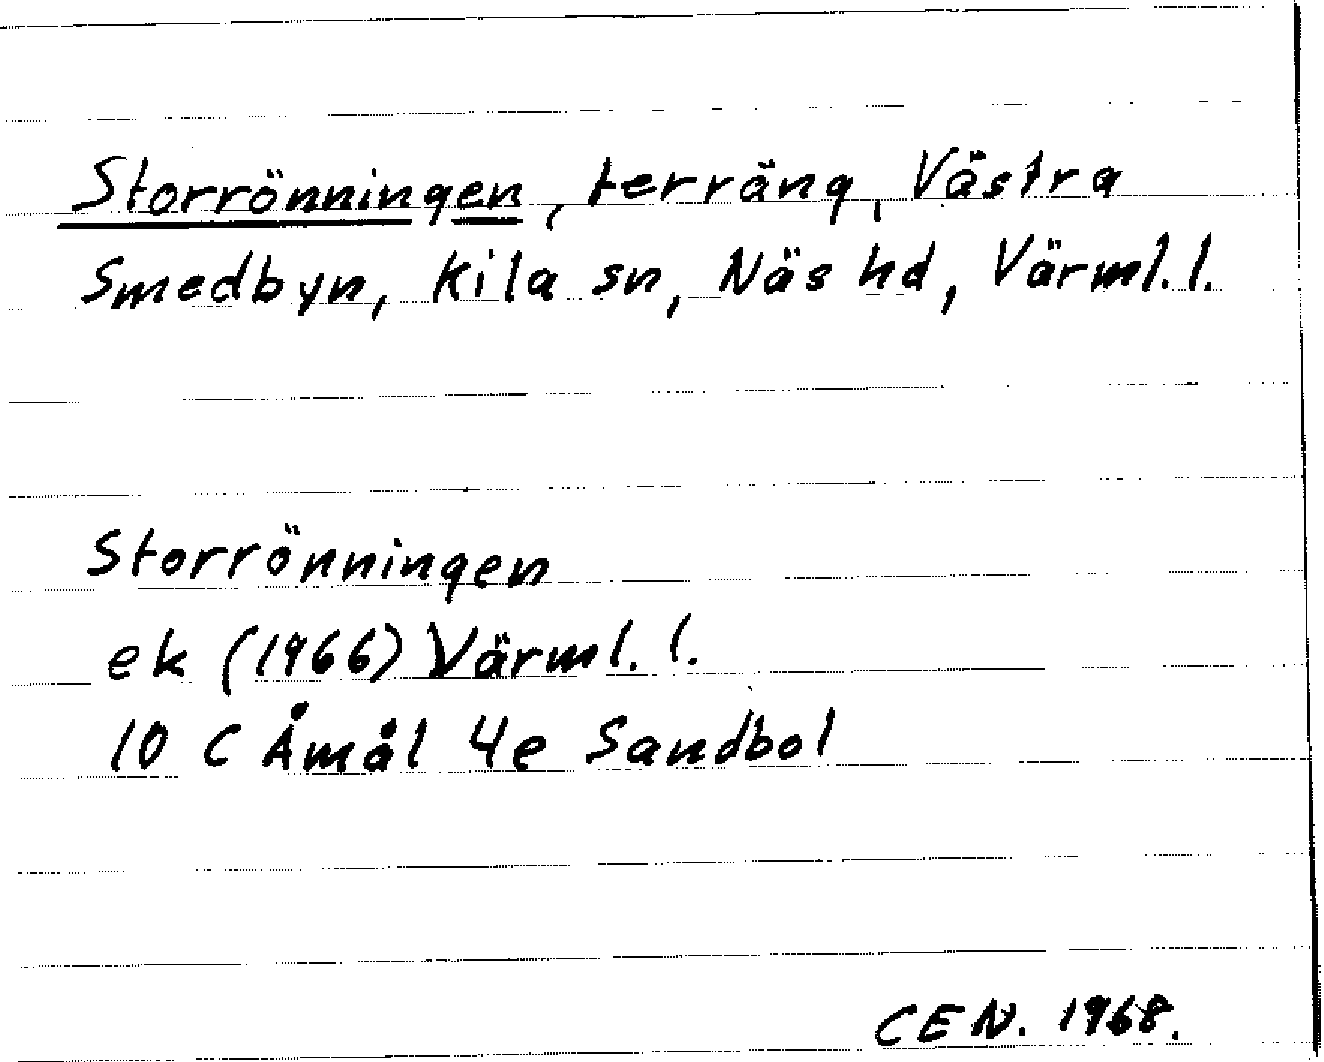 Storrönningen, terräng, Västra
Smedbyn, Kila sn, Näs hd, Värml. l.
Storrönningen
ek (1966) Värml. l.
10 C Åmål 4e Sandbol
CEN. 1968.